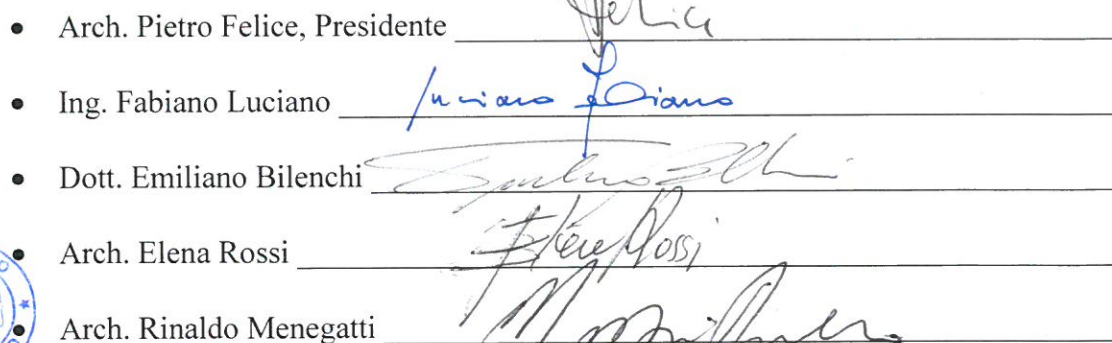 • Arch. Pietro Felice, Presidente Felice
• Ing. Fabiano Luciano Luciano Fabiano
• Dott. Emiliano Bilenchi
• Arch. Elena Rossi Elena Rossi
• Arch. Rinaldo Menegatti